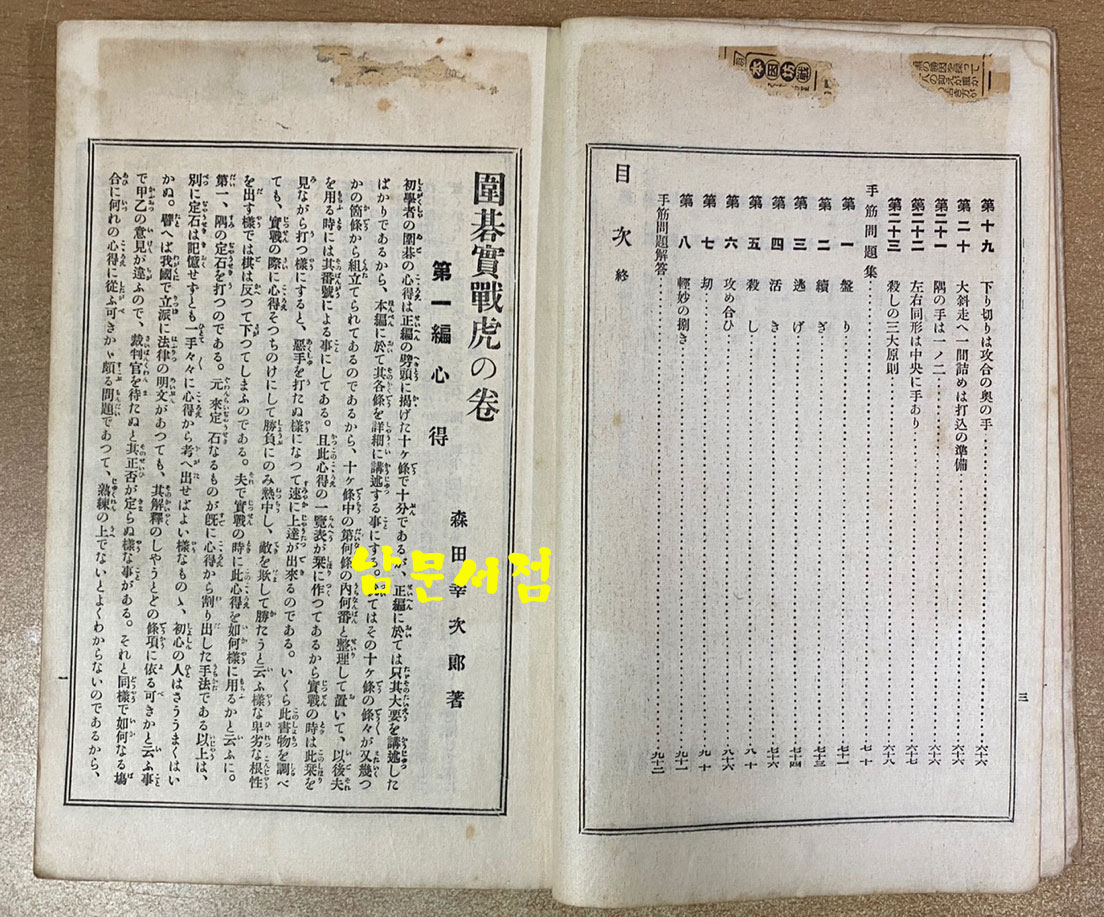 本因坊戦
第十九 下り切りは攻合の奥の手 六十六
第二十 大斜走へ一間詰めは打込の準備 六十六
第二十一 隅の手は一ノ二 六十六
第二十二 左右同形は中央に手あり 六十七
第二十三 殺しの三大原則 六十八
手筋問題集 七十
第一 盤り 七十一
第二 續ぎ 七十三
第三 逃げ 七十四
第四 活き 七十六
第五 殺し 八十
第六 攻め合ひ 八十六
第七 劫 九十
第八 輕妙の捌き 九十一
手筋問題解答 九十二
目次 終
三
圍碁實戰虎の卷
森田幸次郎著
第一編 心得
初學者の圍碁の心得は正編の劈頭に揭げた十ヶ條で十分であるが、正編に於ては只其大要を講述した
ばかりであるから、本編に於て其各條を詳細に講述する事にする。
てはその十ヶ條の條々が又幾つ
かの箇條から組立てられてあるのであるから、十ヶ條中の第何條の內何番と整理して置いて、以後夫
を用る時には其番號による事にしてある。且此心得の一覽表が栞に作つてあるから實戰の時は此栞を
見ながら打つ樣にすると、惡手を打たぬ樣になつて速に上達が出來るのである。いくら此書物を調べ
ても、實戰の際に心得そつちのけにして勝負にのみ熱中し、敵を欺して勝たうと云ふ樣な卑劣な根性
を出す樣では棋は反つて下つてしまふのである。夫で實戰の時に此心得を如何樣に用るかと云ふに。
第一、隅の定石を打つのである。元來定石なるものが旣に心得から割り出した手法である以上は、
別に定石は記憶せずとも一手々々に心得から考へ出せばよい樣なものゝ、初心の人はさううまくはい
かぬ。譬へば我國で立派に法律の明文があつても、其解釋のしやうとどの條項に依る可きかと云ふ事
で甲乙の意見が違ふので、裁判官を待たぬと其正否が定らぬ樣な事がある。それと同樣で如何なる塲
合に何れの心得に從ふ可きかゞ頗る問題であつて、熟練の上でないとよくわからないのであるから、
一
남문서점